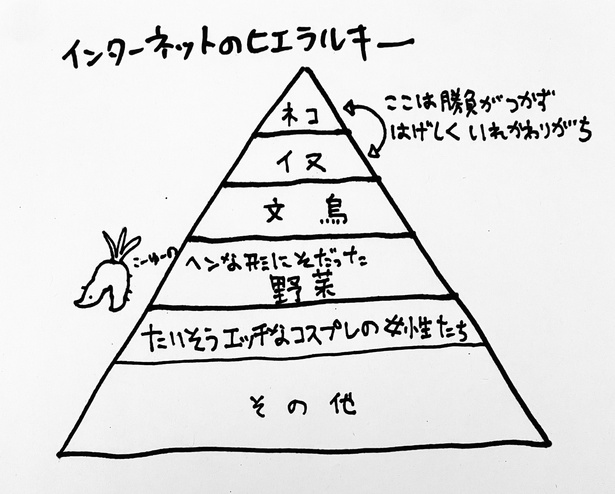 インターネットのヒエラルキー
ネコ
ここは勝負がつかず
はげしくいれかわりがち
イヌ
文鳥
こーゆーの
ヘンな形にそだった
野菜
たいそうエッチなコスプレの女性たち
その他